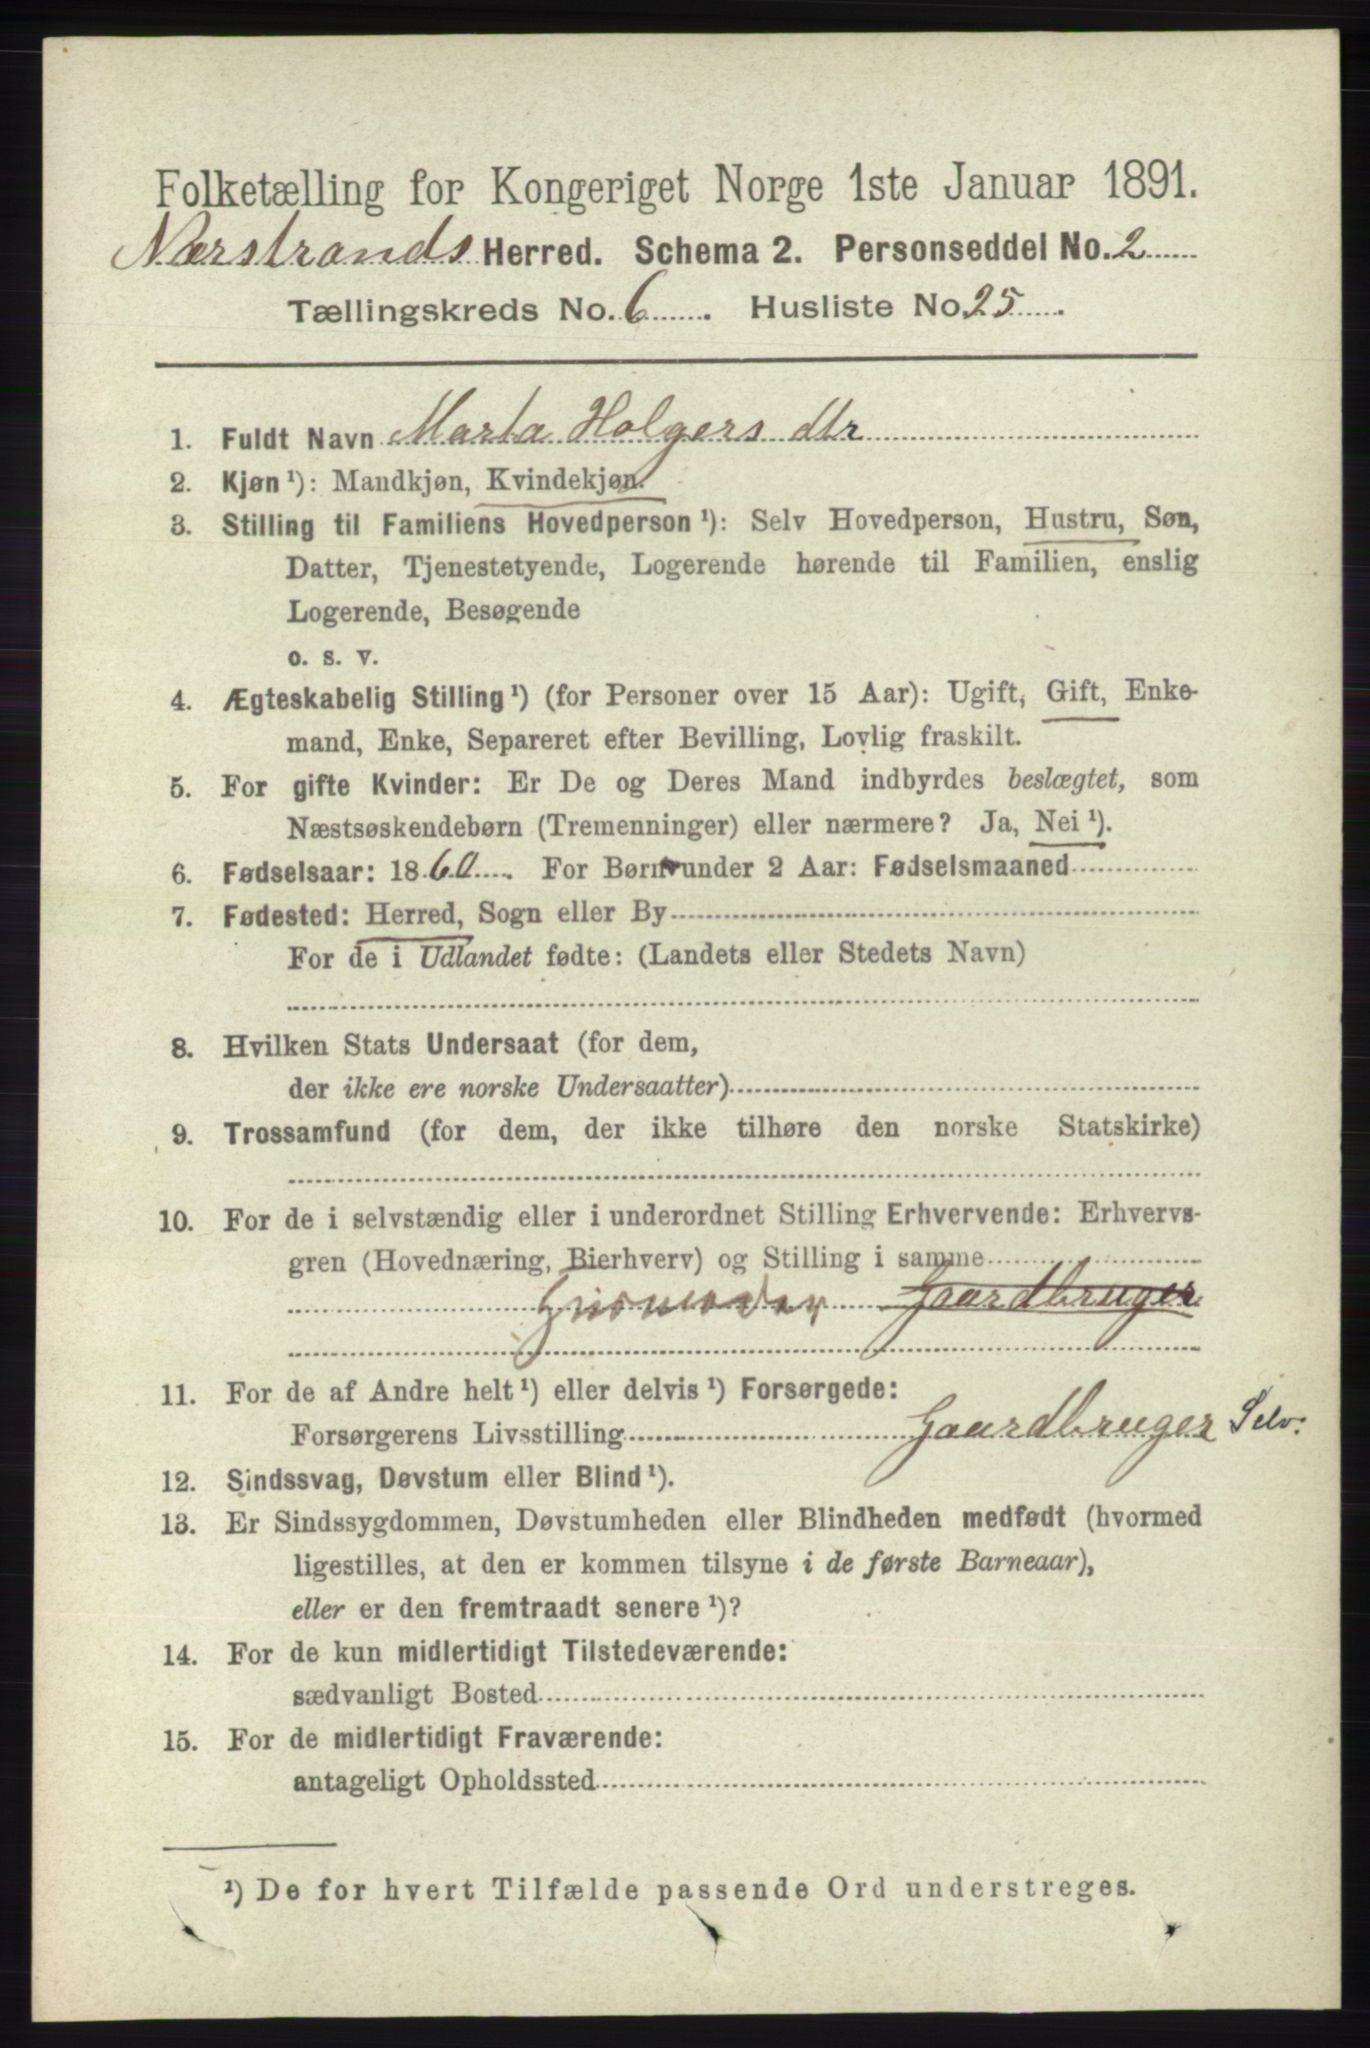 Folketælling for Kongeriget Norge 1ste Januar 1891.
Nærstrands Herred. Schema 2. Personseddel No. 2
Tællingskreds No. 6. Husliste No 25.
1. Fuldt Navn Marta Holgers dtr
2. Kjøn ¹): Mandkjøn, Kvindekjøn.
3. Stilling til Familiens Hovedperson ¹): Selv Hovedperson, Hustru, Søn,
Datter, Tjenestetyende, Logerende hørende til Familien, enslig
Logerende, Besøgende
o. s. v.
4. Ægteskabelig Stilling ¹) (for Personer over 15 Aar): Ugift, Gift, Enke-
mand, Enke, Separeret efter Bevilling, Lovlig fraskilt.
5. For gifte Kvinder: Er De og Deres Mand indbyrdes beslægtet, som
Næstsøskendebørn (Tremenninger) eller nærmere? Ja, Nei ¹).
6. Fødselsaar: 1860. For Børn under 2 Aar: Fødselsmaaned
7. Fødested: Herred, Sogn eller By
For de i Udlandet fødte: (Landets eller Stedets Navn)
8. Hvilken Stats Undersaat (for dem,
der ikke ere norske Undersaatter)
9. Trossamfund (for dem, der ikke tilhøre den norske Statskirke)
10. For de i selvstændig eller i underordnet Stilling Erhvervende: Erhvervs-
gren (Hovednæring, Bierhverv) og Stilling i samme
Husmoder Gaardbruger
11. For de af Andre helt ¹) eller delvis ¹) Forsørgede:
Forsørgerens Livsstilling Gaardbruger Selv.
12. Sindssvag, Døvstum eller Blind ¹).
13. Er Sindssygdommen, Døvstumheden eller Blindheden medfødt (hvormed
ligestilles, at den er kommen tilsyne i de første Barneaar),
eller er den fremtraadt senere ¹)?
14. For de kun midlertidigt Tilstedeværende:
sædvanligt Bosted
15. For de midlertidigt Fraværende:
antageligt Opholdssted
¹) De for hvert Tilfælde passende Ord understreges.